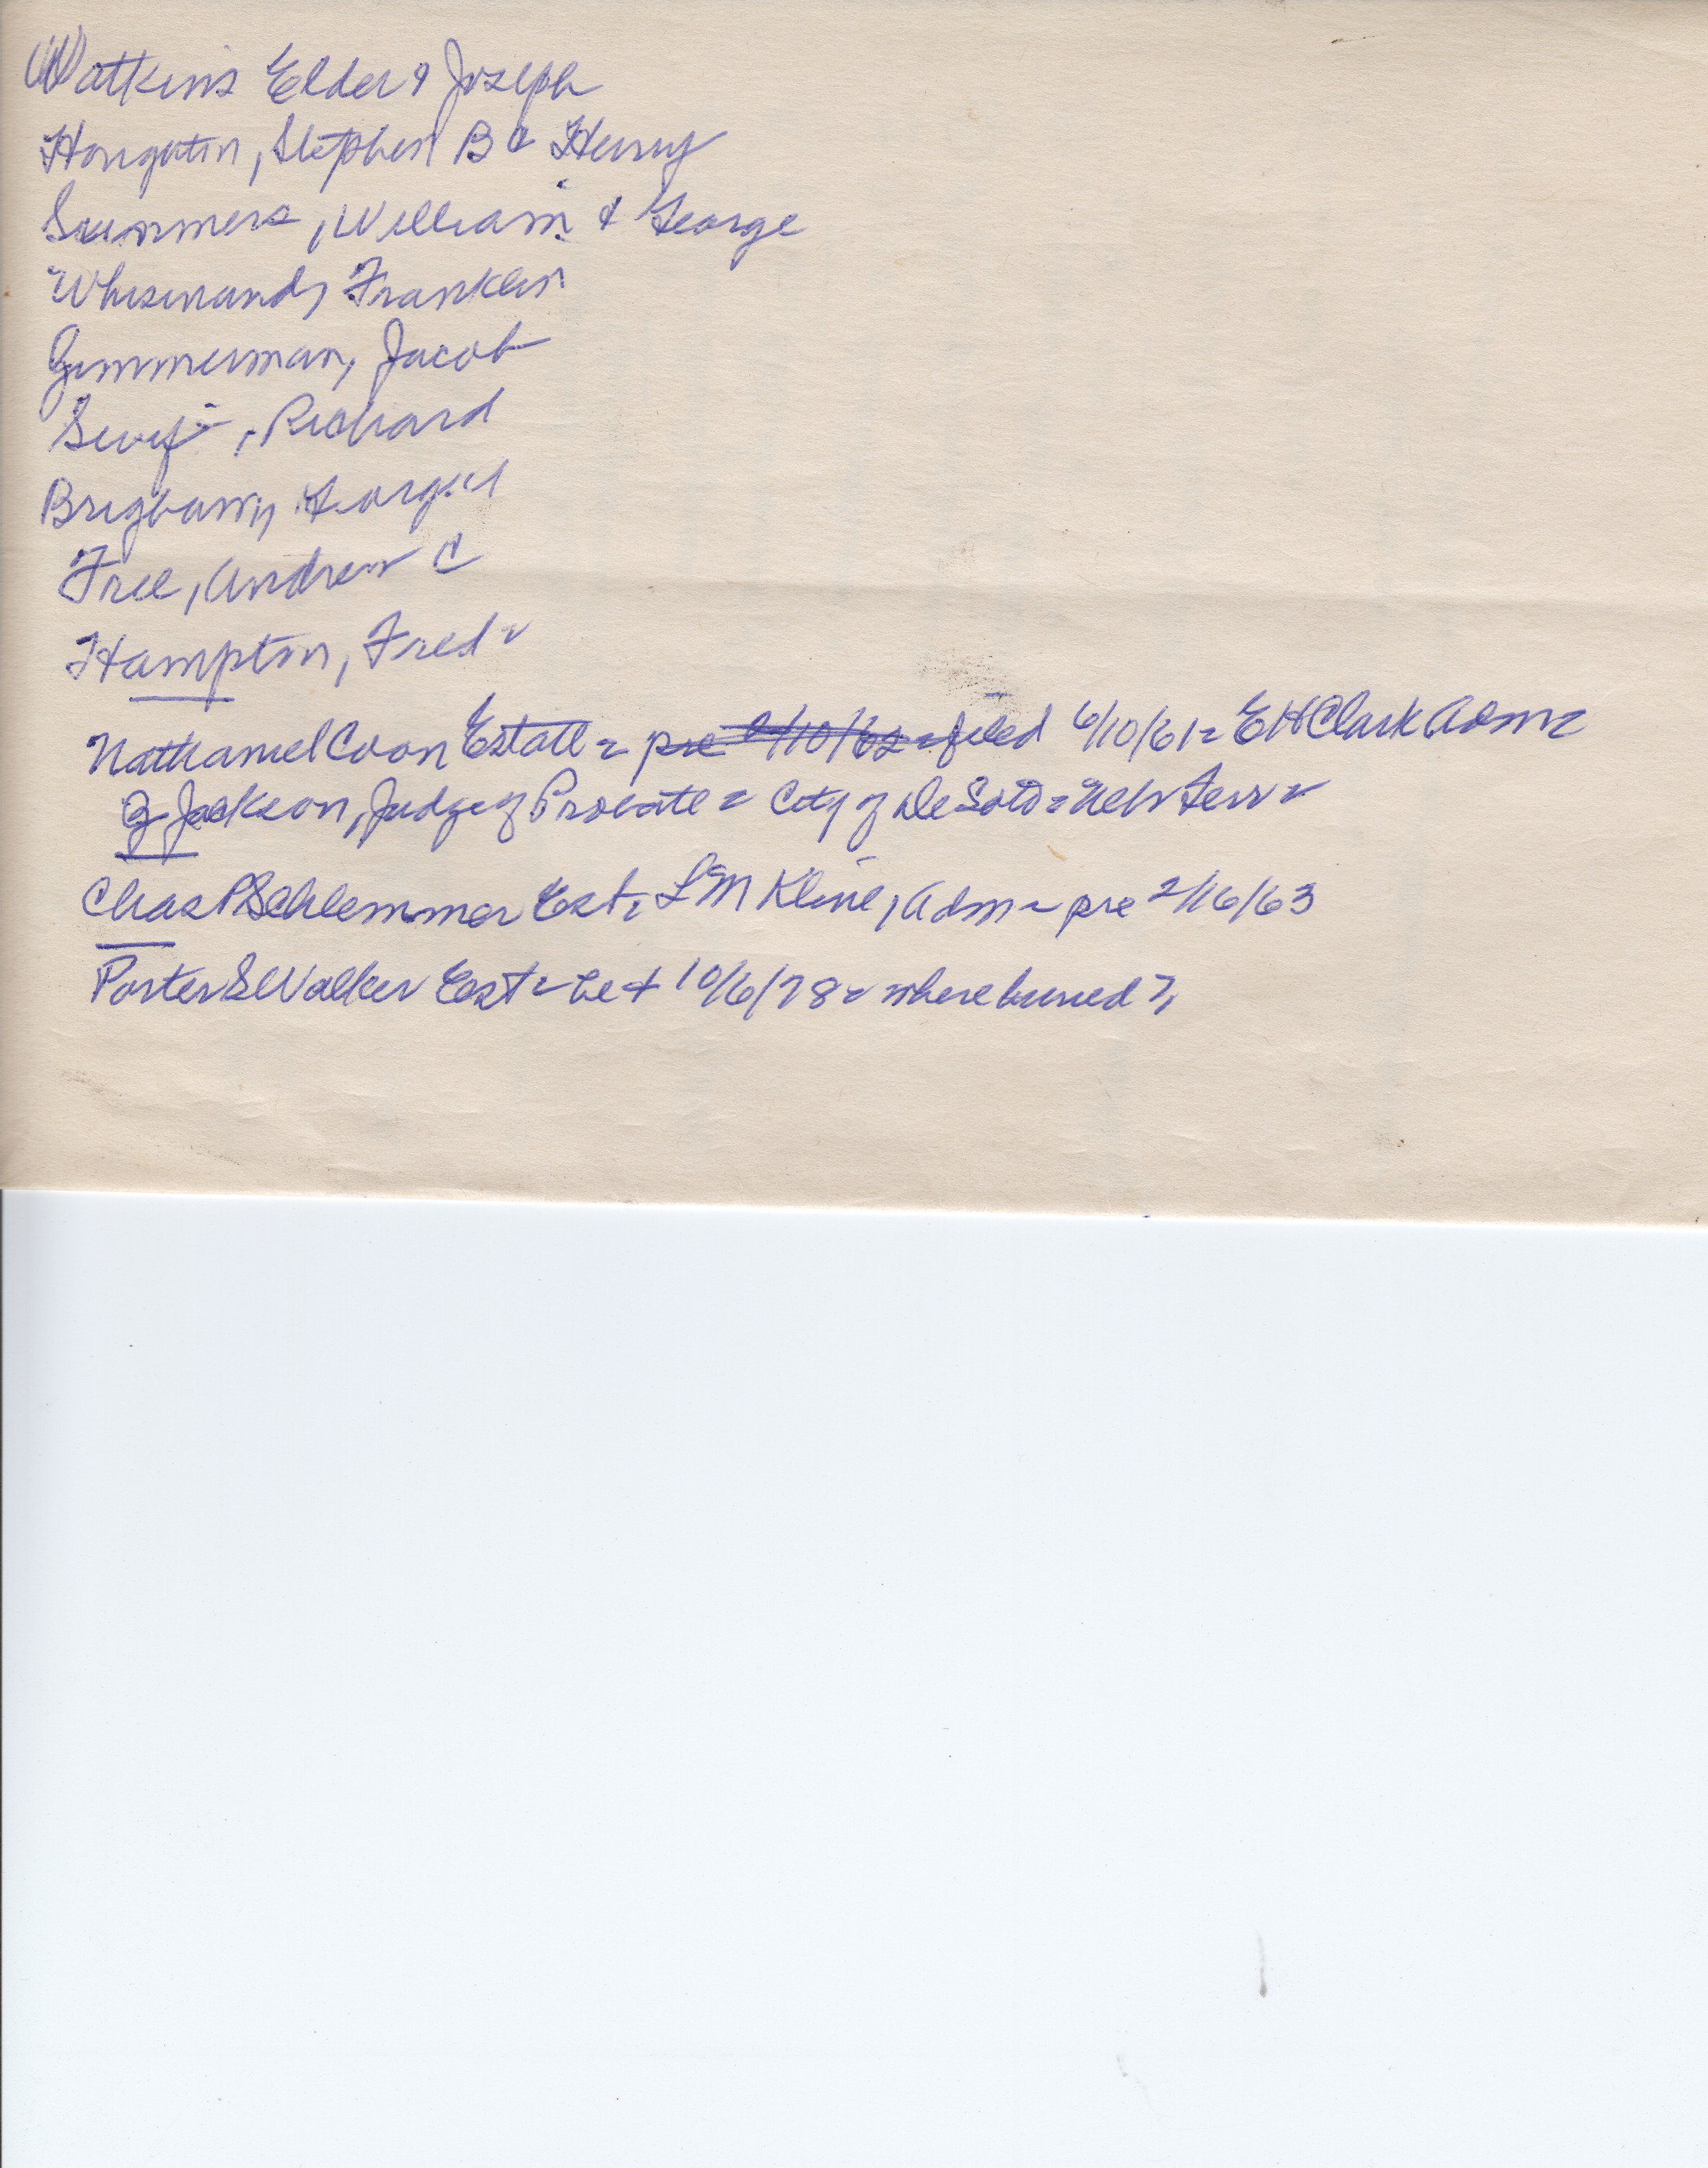 Watkins Elder & Joseph
Hougatin, Stephen B & Henry
Summers, William & George
Whisinand, Franklin
Gimmerman, Jacob
Richard
Free, Andrew C
Hampton, Fred =
Nathaniel Coon Estate = pre filed 6/10/61 = EH Clark Adm =
Jackson, Judge of Probate = City of De Soto = Neb Terr =
Chas P Schlemmer Est = LM Kline, Adm = pre 2/16/63
Porter S Walker Est = Let 10/6/78 = where buried ?